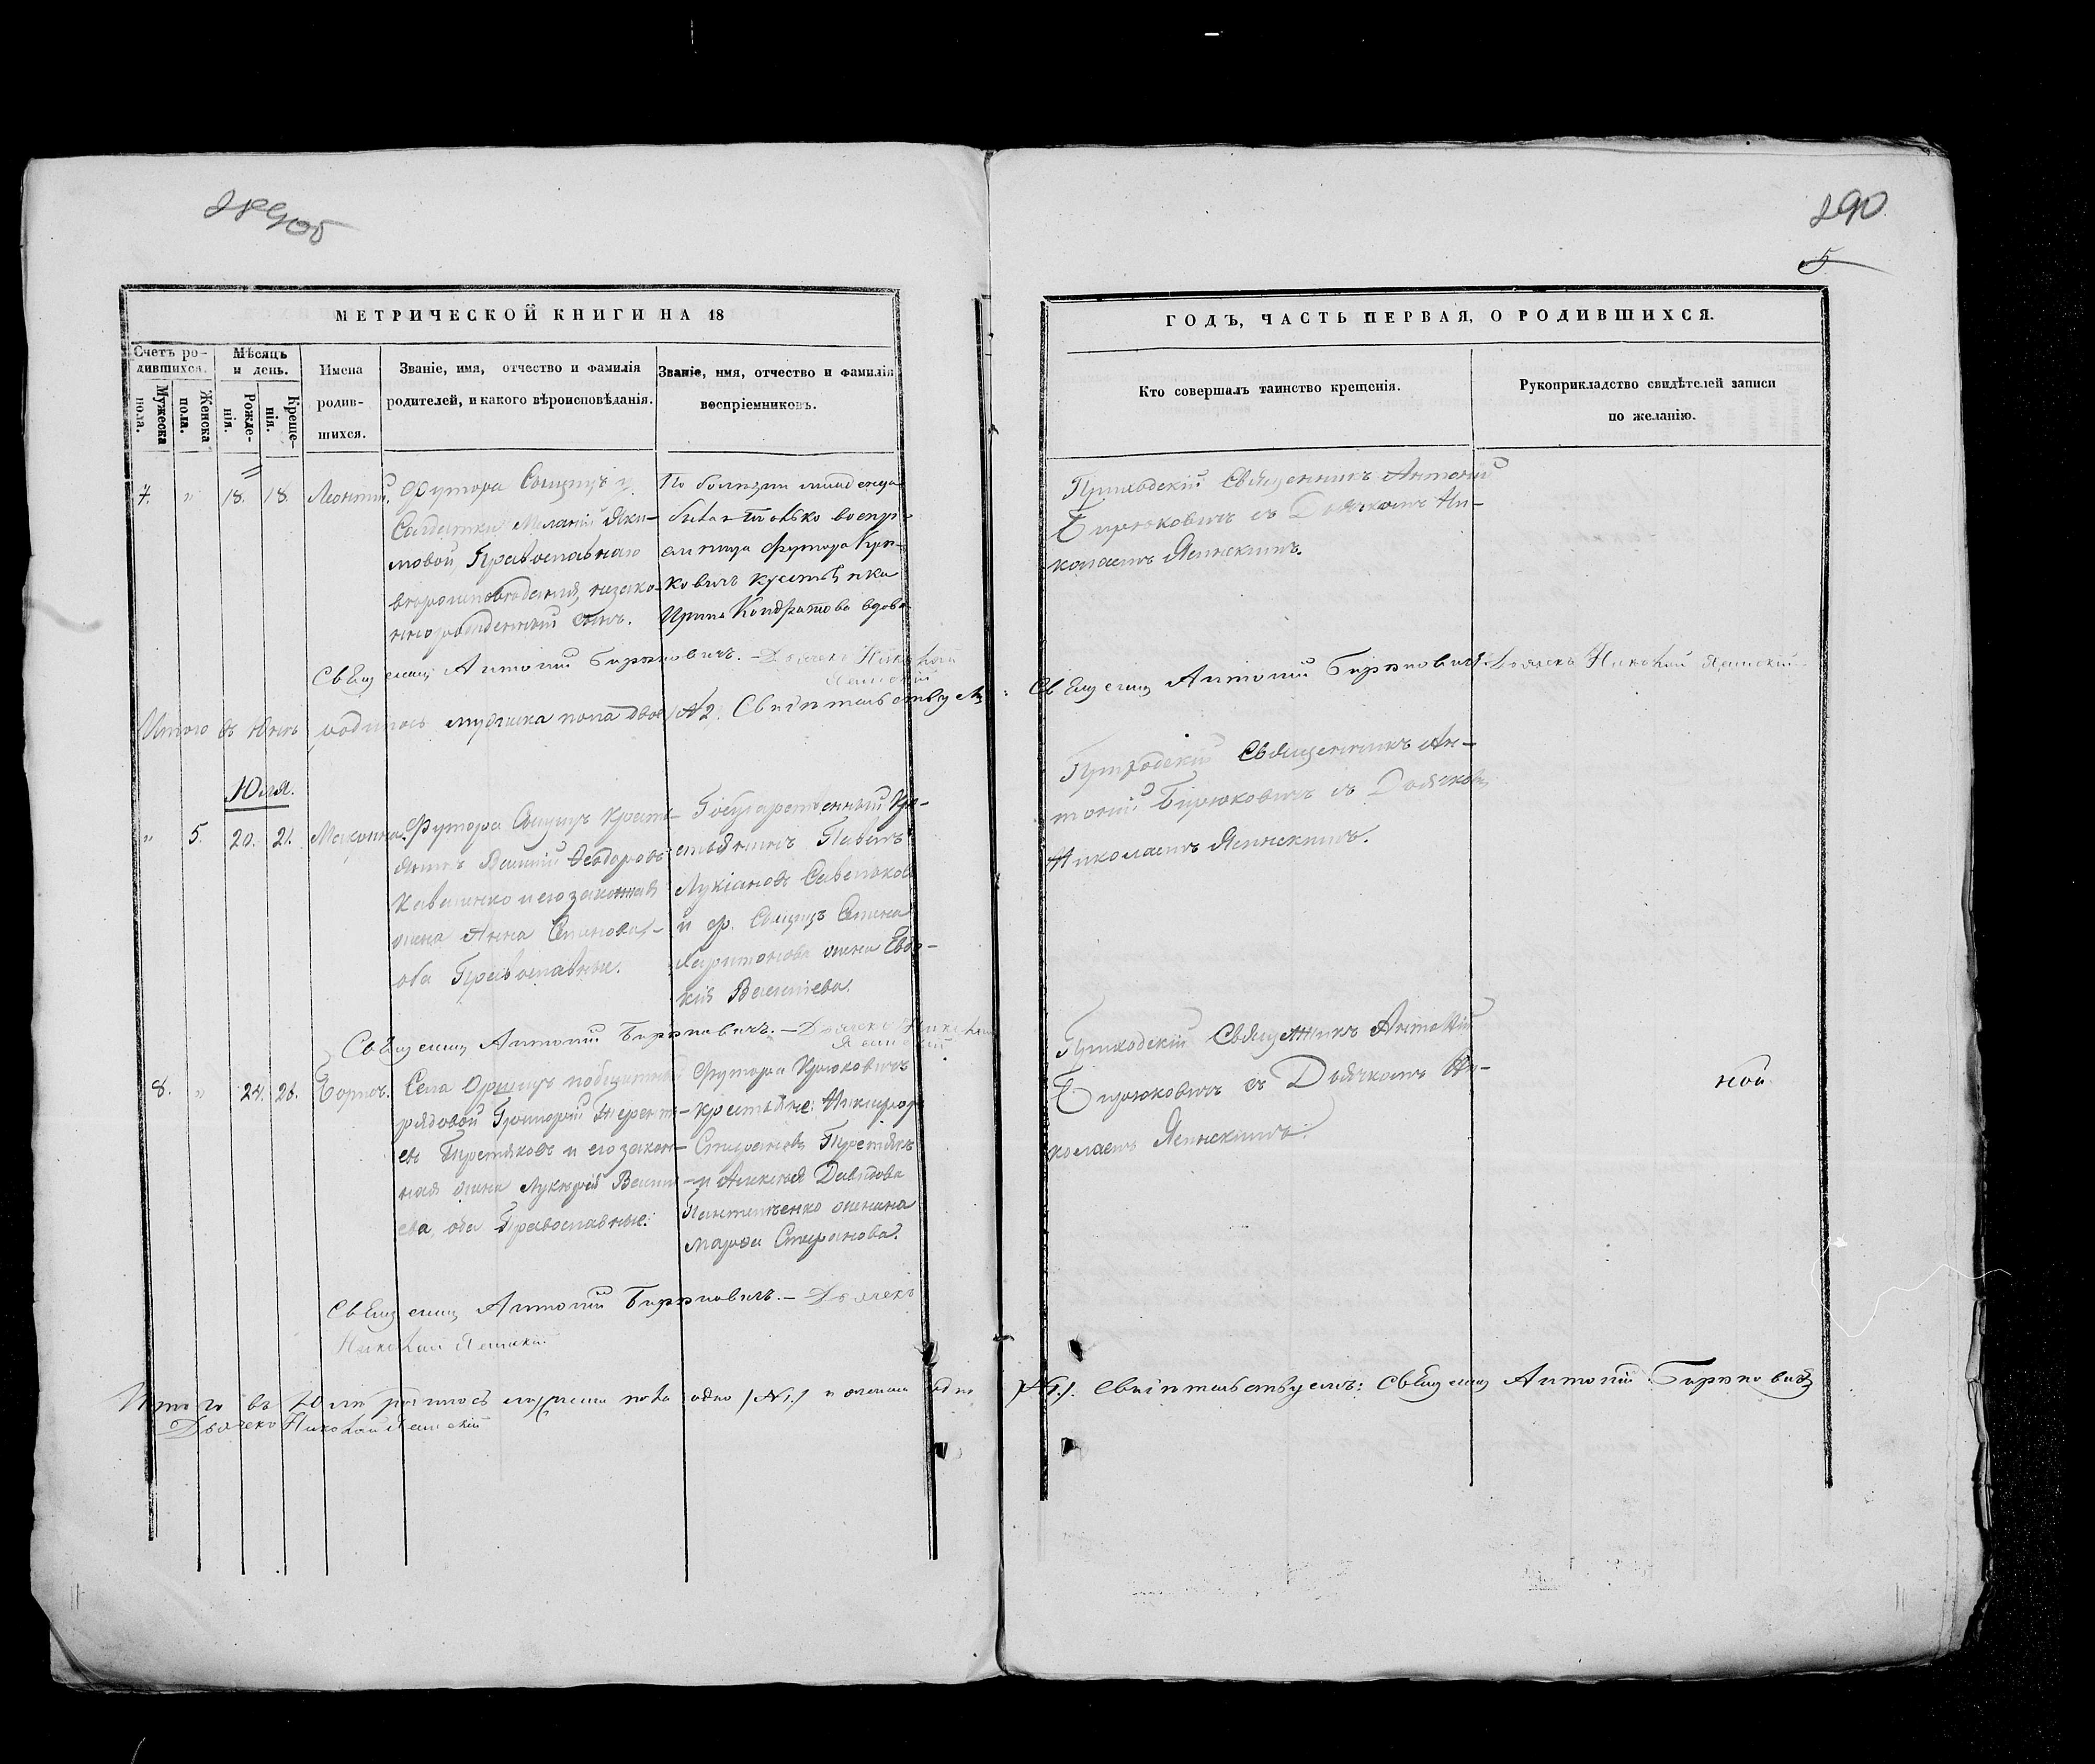 289об
290
5
МЕТРИЧЕСКОЙ КНИГИ НА 18
ГОДЪ, ЧАСТЬ ПЕРВАЯ, О РОДИВШИХСЯ.
Счетъ ро-
дившихся.
Мужеска
пола.
Женска
пола.
Мѣсяцъ
и день.
Рожде-
нія.
Креще-
нія.
Имена
родив-
шихся.
Званіе, имя, отчество и фамилія
родителей, и какого вѣроисповѣданія.
Званіе, имя, отчество и фамилія
воспріемниковъ.
Кто совершалъ таинство крещенія.
Рукоприкладство свидѣтелей записи
по желанію.
7. " 18. 18. Леонтій.
Футора
Солдатки Меланіи Яки-
мовой, Православнаго
вѣроисповѣданія, незако-
ннорожденный сынъ.
По болѣзни младенца
была только воспрі-
емница футора Крю-
ковичъ крестьянка
Ирина Кондратова вдова
Приходскій Священникъ Антоній
Бирюковичъ съ Дьячкомъ Ни-
колаемъ Ясинскимъ.
Священникъ Антоній Бирюковичъ. – Дьячекъ Николай
Ясинскій
Итого въ Юнѣ родилось мужеска пола двое /№2/. Свидѣтельствуемъ:
Священникъ Антоній Бирюковичъ. Дьячекъ Николай Ясинскій
Юля.
" 5. 20. 21.
Футора Крестья-
нинъ Ѳеодоровъ
и его законная
жена Анна
оба Православные.
Государственный Кре-
стьянинъ Павелъ
Лукіановъ Савельковъ
и ф.
Харитонова жена Евдо-
кія Васильева.
Приходскій Священникъ Ан-
тоній Бирюковичъ съ Дьячкомъ
Николаемъ Ясинскимъ.
Священникъ Антоній Бирюковичъ. – Дьячекъ Николай
Ясинскій
8. " 24. 26. Борисъ.
Села
рядовой Григорій Теренті-
евъ Третяковъ и его закон-
ная жена Лукерія Васильева
оба Православные.
Футора Крюковичъ
крестьяне: Никифоръ
Стефановъ Третякъ
и Алексѣя Давидова
Пантеленко женина
Марѳа Стефанова.
Приходскій Священникъ Антоній
Бирюковичъ съ Дьячкомъ Ни-
колаемъ Ясинскимъ.
ной.
Священникъ Антоній Бирюковичъ. – Дьячекъ
Николай Ясинскій
Итого въ Юлѣ родилось мужеска пола одно /№1./ и женска одно
/№1./. Свидѣтельствуемъ: Священникъ Антоній Бирюковичъ
Дьячекъ Николай Ясинскій